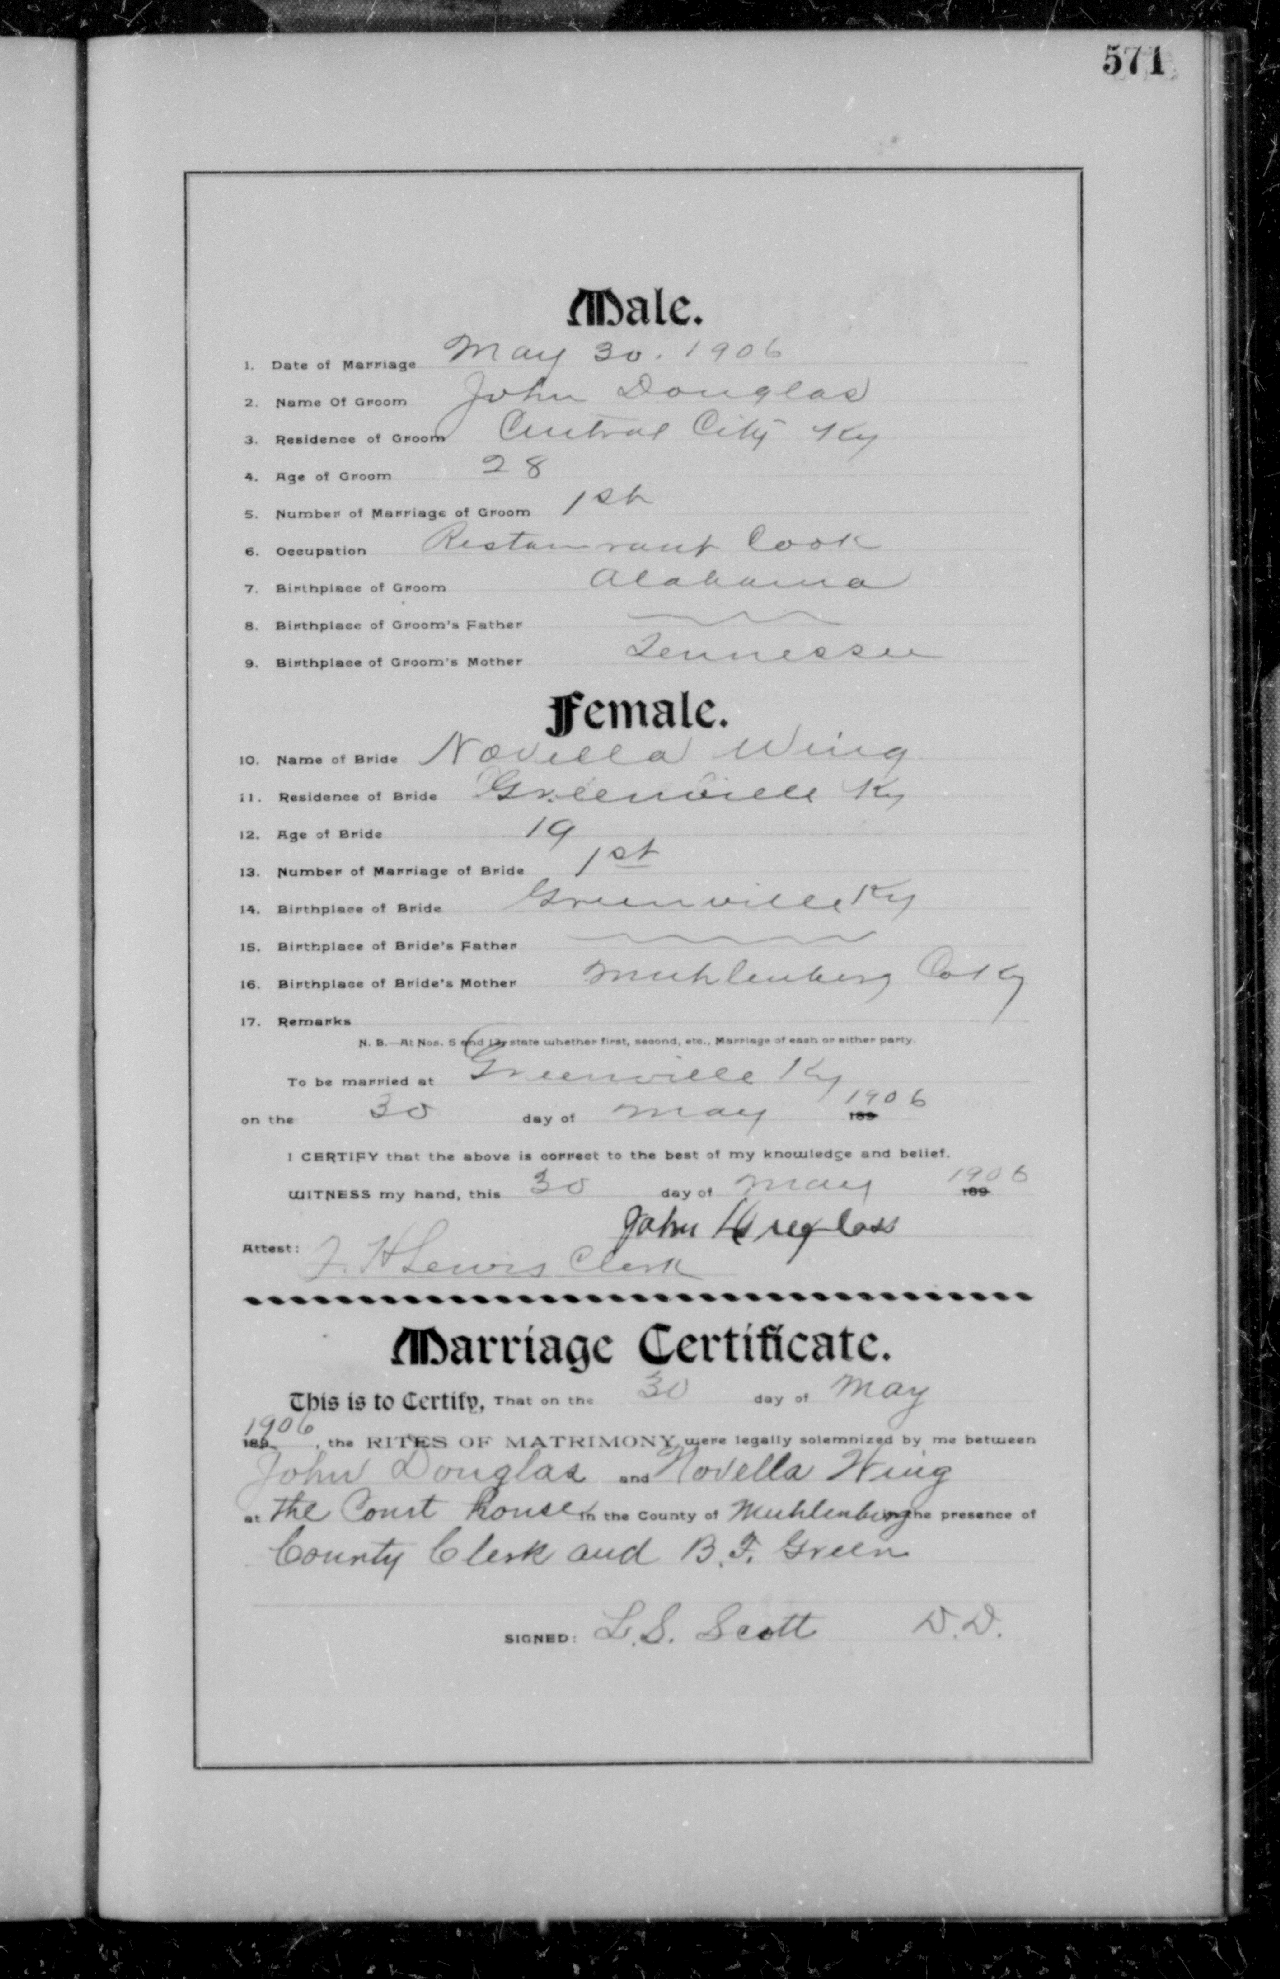 571
Male.
1. Date of Marriage May 30. 1906
2. Name Of Groom John Douglas
3. Residence of Groom Central City Ky
4. Age of Groom 28
5. Number of Marriage of Groom 1st
6. Occupation Restaurant Cook
7. Birthplace of Groom Alabama
8. Birthplace of Groom's Father
9. Birthplace of Groom's Mother Tennessee
Female.
10. Name of Bride Novella Wing
11. Residence of Bride Greenville Ky
12. Age of Bride 19
13. Number of Marriage of Bride 1st
14. Birthplace of Bride Greenville Ky
15. Birthplace of Bride's Father
16. Birthplace of Bride's Mother Muhlenberg Co Ky
17. Remarks
N. B.—At Nos. 5 and 13, state whether first, second, etc., Marriage of each or either party.
To be married at Greenville Ky
on the 30 day of May 189 1906
I CERTIFY that the above is correct to the best of my knowledge and belief.
WITNESS my hand, this 30 day of May 189 1906
John
Attest: Lewis Clerk
Marriage Certificate.
This is to Certify, That on the 30 day of May
189 1906, the RITES OF MATRIMONY were legally solemnized by me between
John Douglas and Novella Wing
at the Court house in the County of Muhlenberg in the presence of
County Clerk and B. F. Green
SIGNED: L. S. Scott D. D.